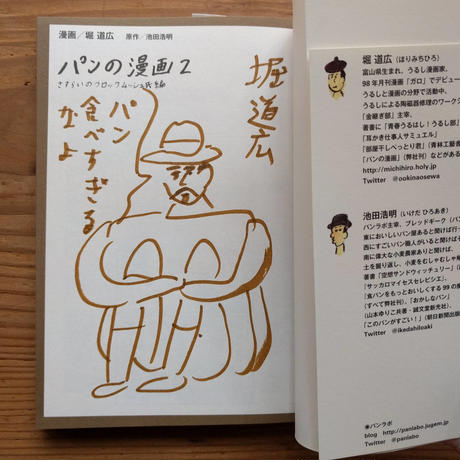 漫画／堀 道広　原作／池田浩明
パンの漫画2
さすらいのクロックムッシュ氏編
堀道広
パン
食べすぎる
なよ
堀 道広（ほりみちひろ）
富山県生まれ。うるし漫画家。
98年月刊漫画「ガロ」でデビュー
うるしと漫画の分野で活動中。
うるしによる陶磁器修理のワークシ
「金継ぎ部」主宰。
著書に「青春うるはし！うるし部」
「耳かき仕事人サミュエル」
「部屋干しぺっとり君」（青林工藝舎
「パンの漫画」（弊社刊）などがある
http://michihiro.holy.jp
Twitter　@ookinaosewa
池田浩明（いけだ ひろあき）
パンラボ主宰、ブレッドギーク（パン
東においしいパン屋あると聞けば行っ
西にすごいパン職人がいると聞けばそ
南に偉大な小麦農家ありと聞けば、
土を掘り返し、小麦をむしゃむしゃ
著書「空想サンドウィッチュリー」
「サッカロマイセスセレビシエ」、
「食パンをもっとおいしくする99の
（すべて弊社刊）、「おかしなパン」
（山本ゆりこ共著・誠文堂新光社）、
「このパンがすごい！」（朝日新聞出版
Twitter　@ikedahiloaki
◉パンラボ
blog　http://panlabo.jugem.jp
Twitter　@panlabo